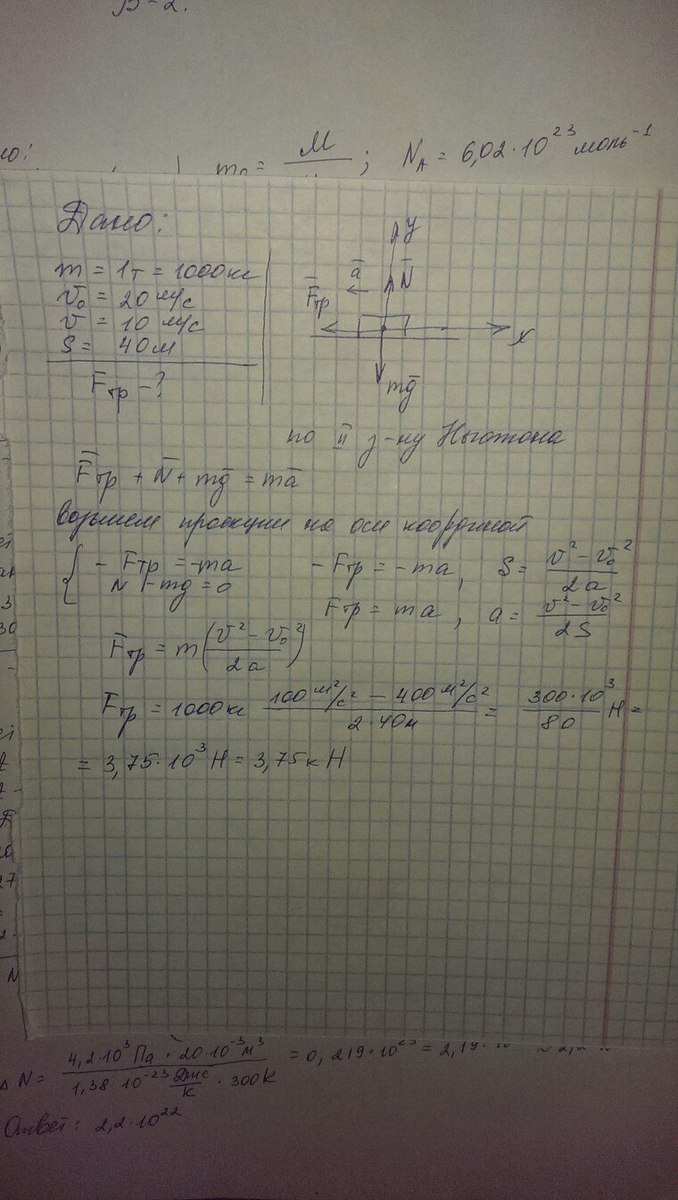 В-2.
но:
m₀ = M ; N_A = 6,02·10²³ моль⁻¹
Дано:
m = 1т = 1000кг
v₀ = 20 м/с
v = 10 м/с
S = 40м
Fтр - ?
y
a̅
N̅
F̅тр
x
mg̅
по II з-ну Ньютона
F̅тр + N̅ + mg̅ = ma̅
возьмем проекции на оси координат
{ - Fтр = -ma
N - mg = 0
- Fтр = -ma, S = (v² - v₀²)/2a
Fтр = ma, a = (v² - v₀²)/2S
Fтр = m((v² - v₀²)/2a)
Fтр = 1000кг (100 м²/с² - 400 м²/с²)/(2·40м) = (300·10³)/80 Н =
= 3,75·10³ Н = 3,75 кН
N = (4,2·10³ Па · 20·10⁻³ м³)/(1,38·10⁻²³ Дж/К · 300К) = 0,219·10²³ = 2,19·10
Ответ: 2,2·10²²